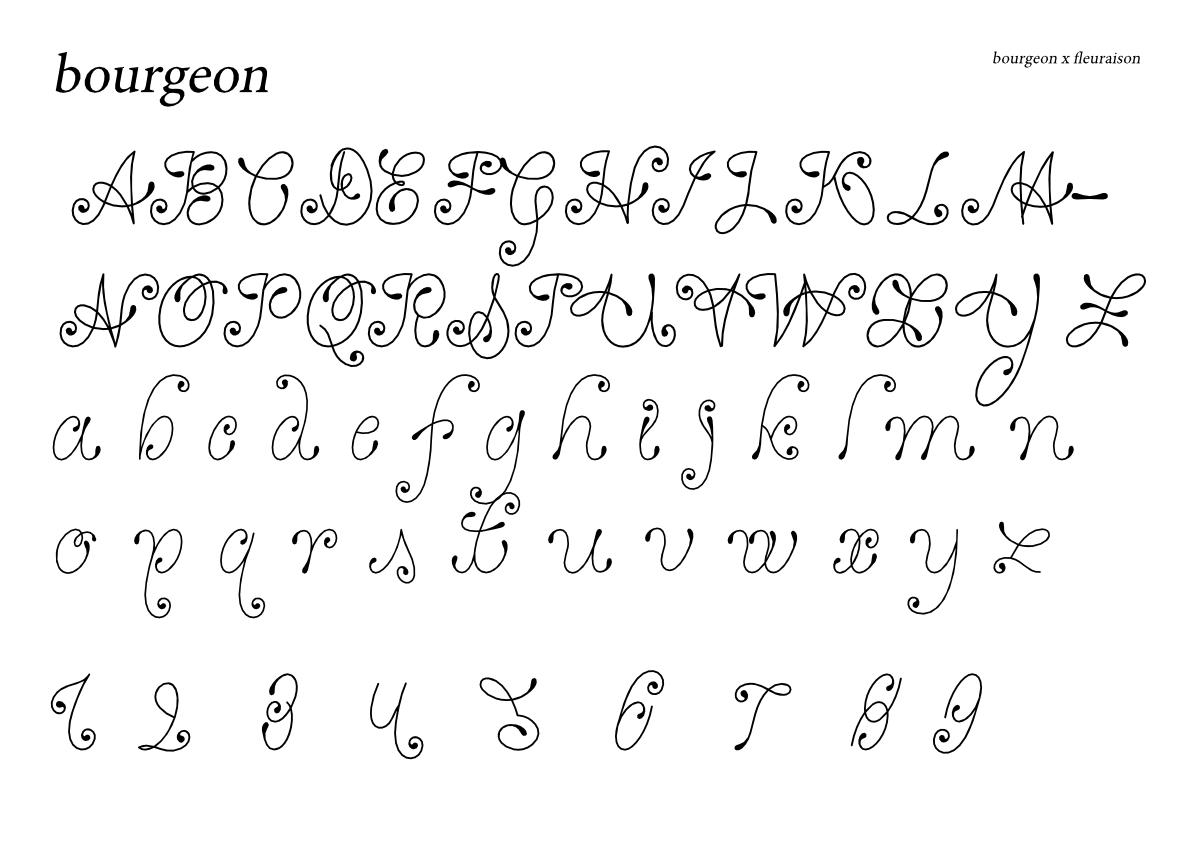 bourgeon
bourgeon x fleuraison
A B C D E F G H I J K L M -
N O P Q R S T U V W X Y Z
a b c d e f g h i j k l m n
o p q r s t u v w x y z
1 2 3 4 5 6 7 8 9